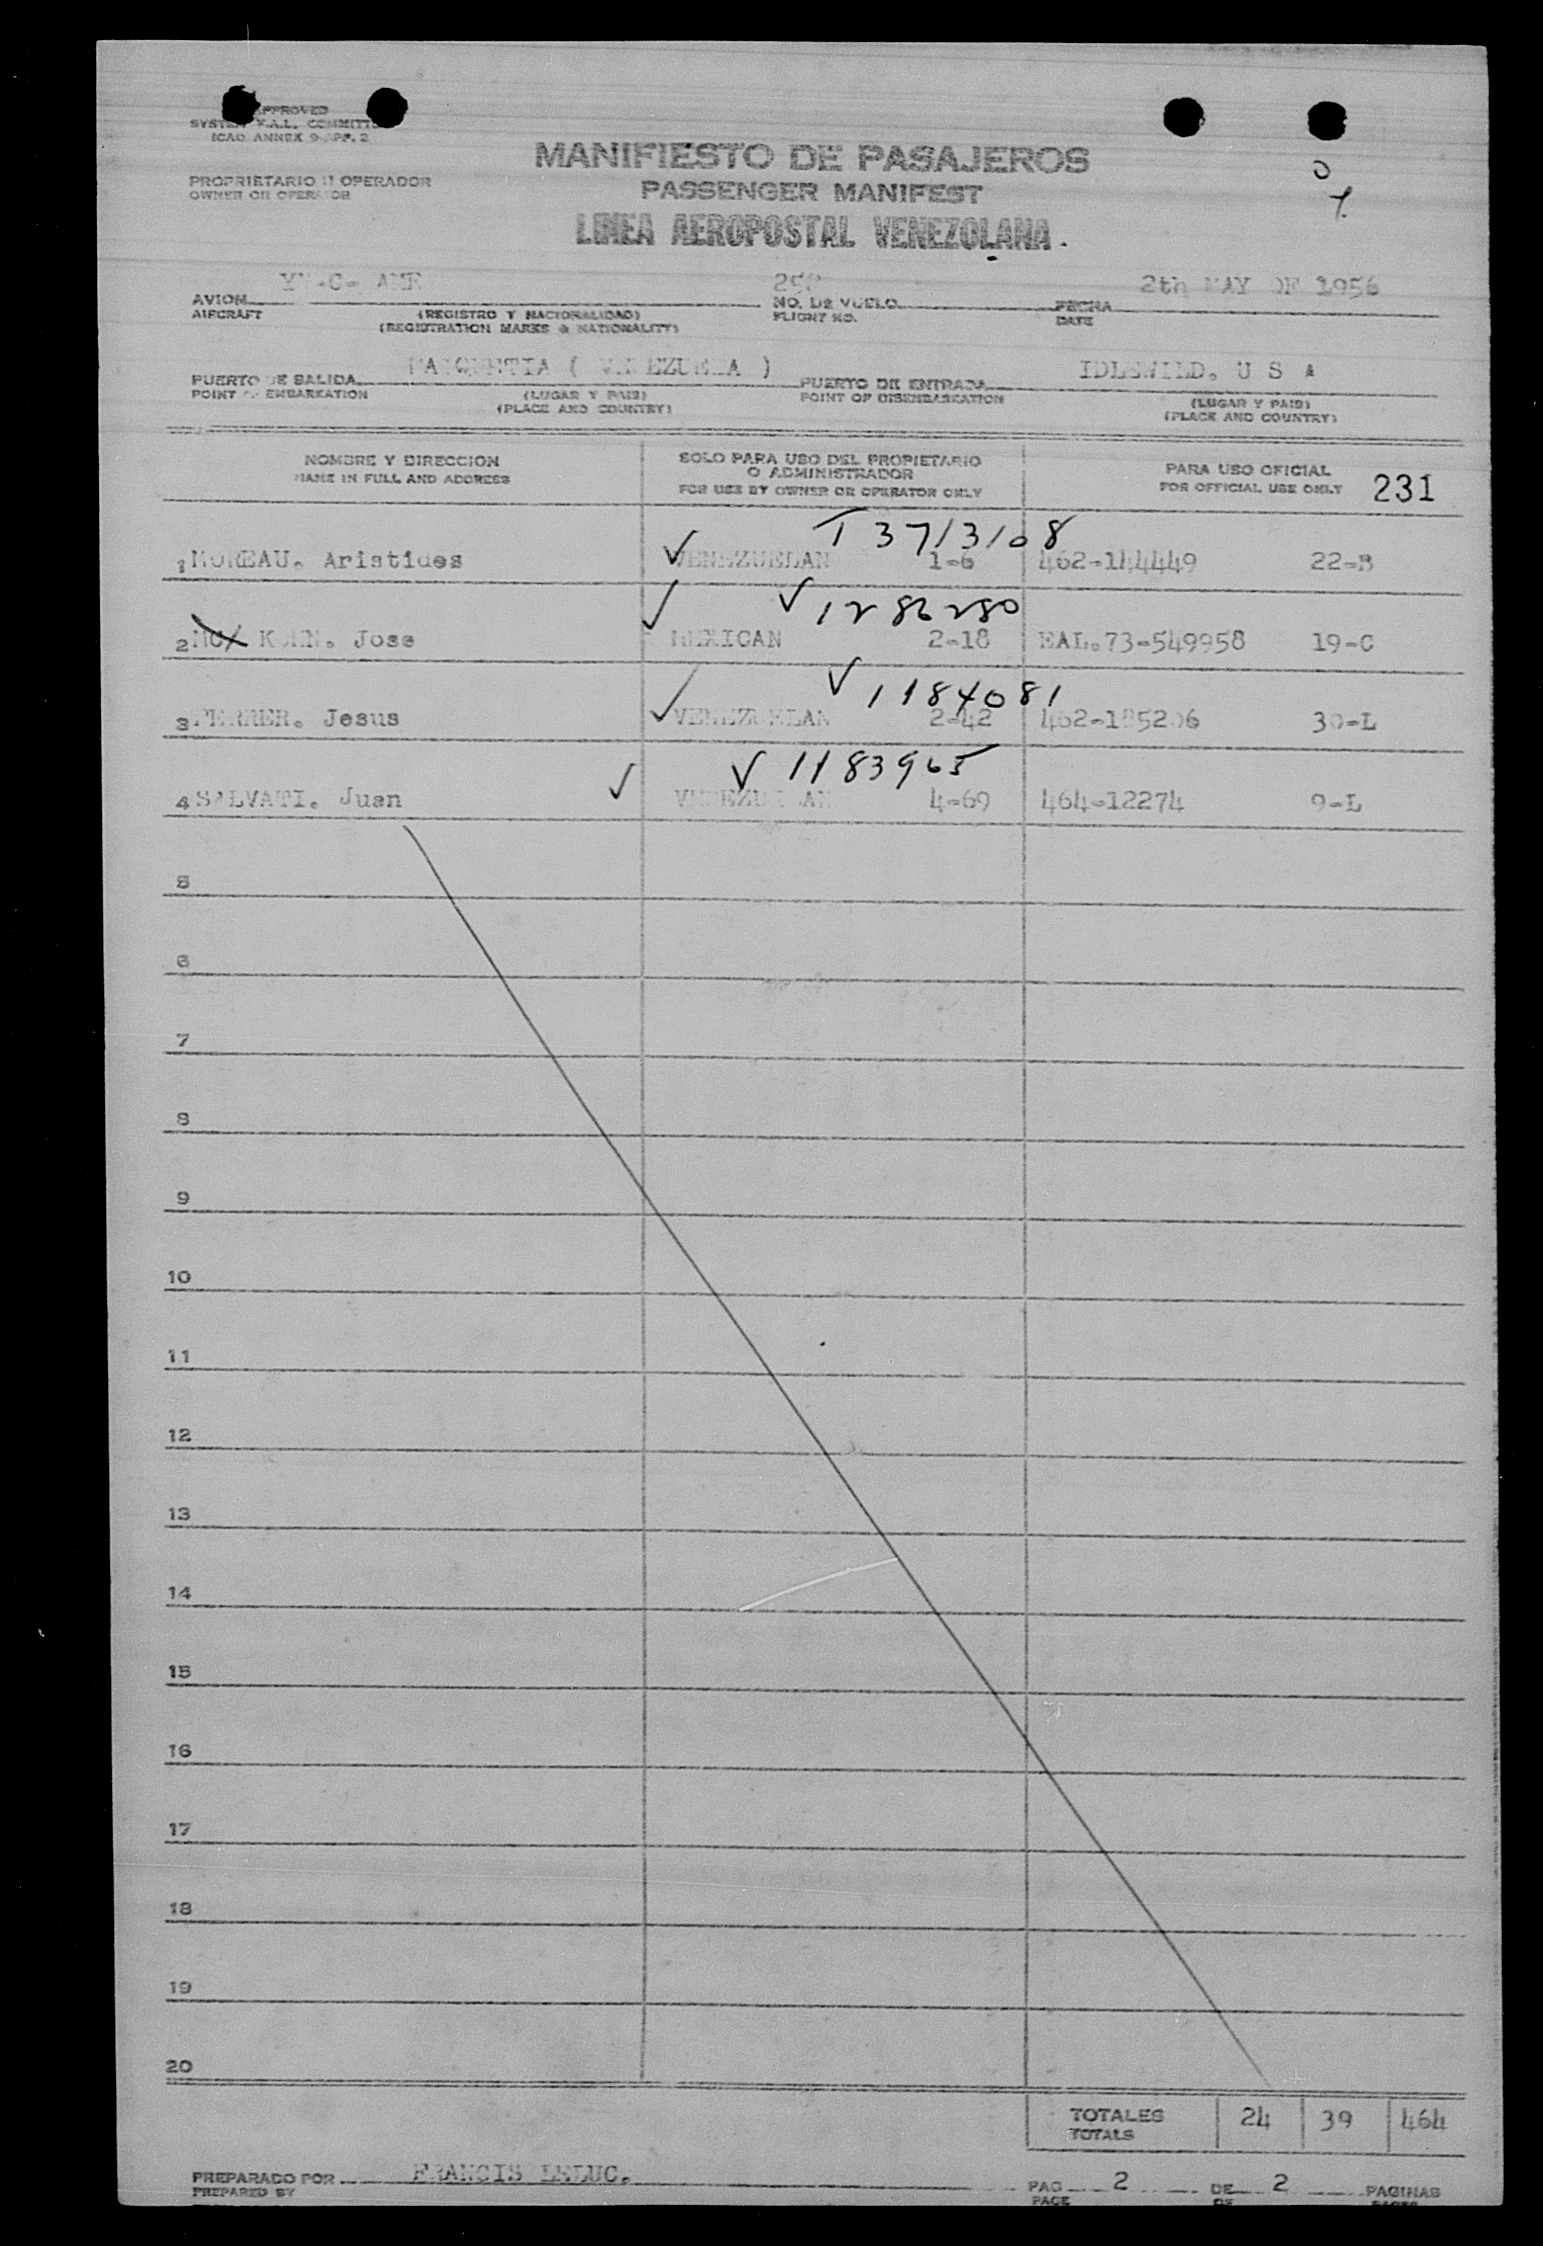 APPROVED
SYSTEM F.A.L. COMMITTEE
ICAO ANNEX 9-APP. 2
MANIFIESTO DE PASAJEROS
PROPRIETARIO U OPERADOR
OWNER OR OPERATOR
PASSENGER MANIFEST
LINEA AEROPOSTAL VENEZOLANA.
2th MAY OF 1956
AVION
AIRCRAFT
(REGISTRO Y NACIONALIDAD)
(REGISTRATION MARKS & NATIONALITY)
NO. DE VUELO
FLIGHT NO.
FECHA
DATE
MAIQUETIA ( VENEZUELA )
IDLEWILD. U S A
PUERTO DE SALIDA
POINT OF EMBARKATION
(LUGAR Y PAIS)
(PLACE AND COUNTRY)
PUERTO DE ENTRADA
POINT OF DISEMBARKATION
(LUGAR Y PAIS)
(PLACE AND COUNTRY)
NOMBRE Y DIRECCION
NAME IN FULL AND ADDRESS
SOLO PARA USO DEL PROPIETARIO
O ADMINISTRADOR
FOR USE BY OWNER OR OPERATOR ONLY
PARA USO OFICIAL
FOR OFFICIAL USE ONLY
231
T 3713108
1 MOREAU. Aristides VENEZUELAN 1-6 462-144449 22-B
V 1282280
2 KOHN. Jose MEXICAN 2-18 EAL.73-549958 19-C
V 1184081
3 FERRER. Jesus VENEZUELAN 2-42 462-185206 30-L
V 1183965
4 SALVATI. Juan VENEZUELAN 4-69 464-12274 9-L
5
6
7
8
9
10
11
12
13
14
15
16
17
18
19
20
TOTALES
TOTALS
24 39 464
PREPARADO POR FRANCIS LELUC.
PREPARED BY
PAG 2 DE 2 PAGINAS
PAGE OF PAGES